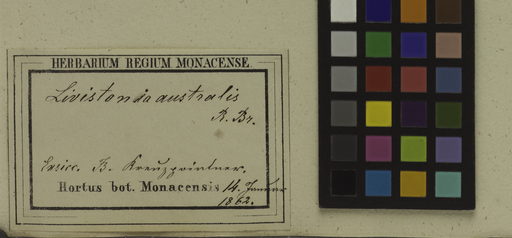 HERBARIUM REGIUM MONACENSE.
Livistonia australis
R. Br.
B. Kreuzpointner.
Hortus bot. Monacensis 14. Januar
1862.